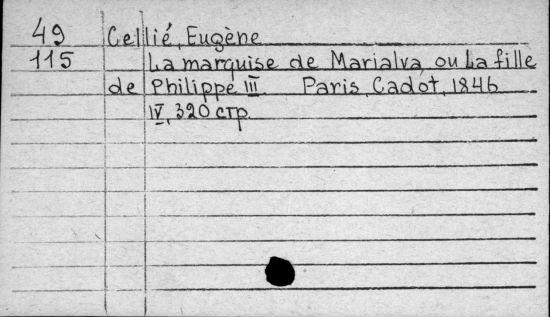 49 Cellié, Eugène
115 La marquise de Marialva ou La fille
de Philippe III Paris, Cadot, 1846
IV, 320 стр.